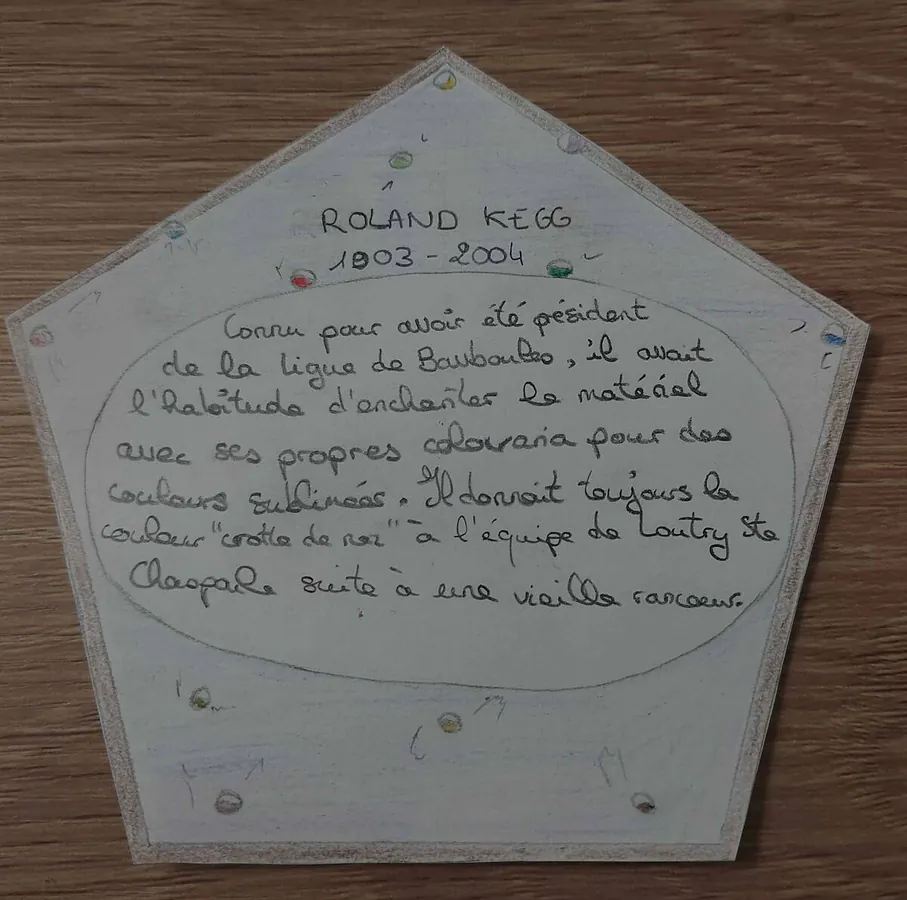 ROLAND KEGG
1903 - 2004
Connu pour avoir été président
de la ligue de Bavboules, il avait
l'habitude d'enchanter le matériel
avec ses propres colovaria pour des
couleurs sublimées. Il donnait toujours la
couleur "crotte de nez" à l'équipe de Loutry Ste
Chaspoule suite à une vieille rancoeur.